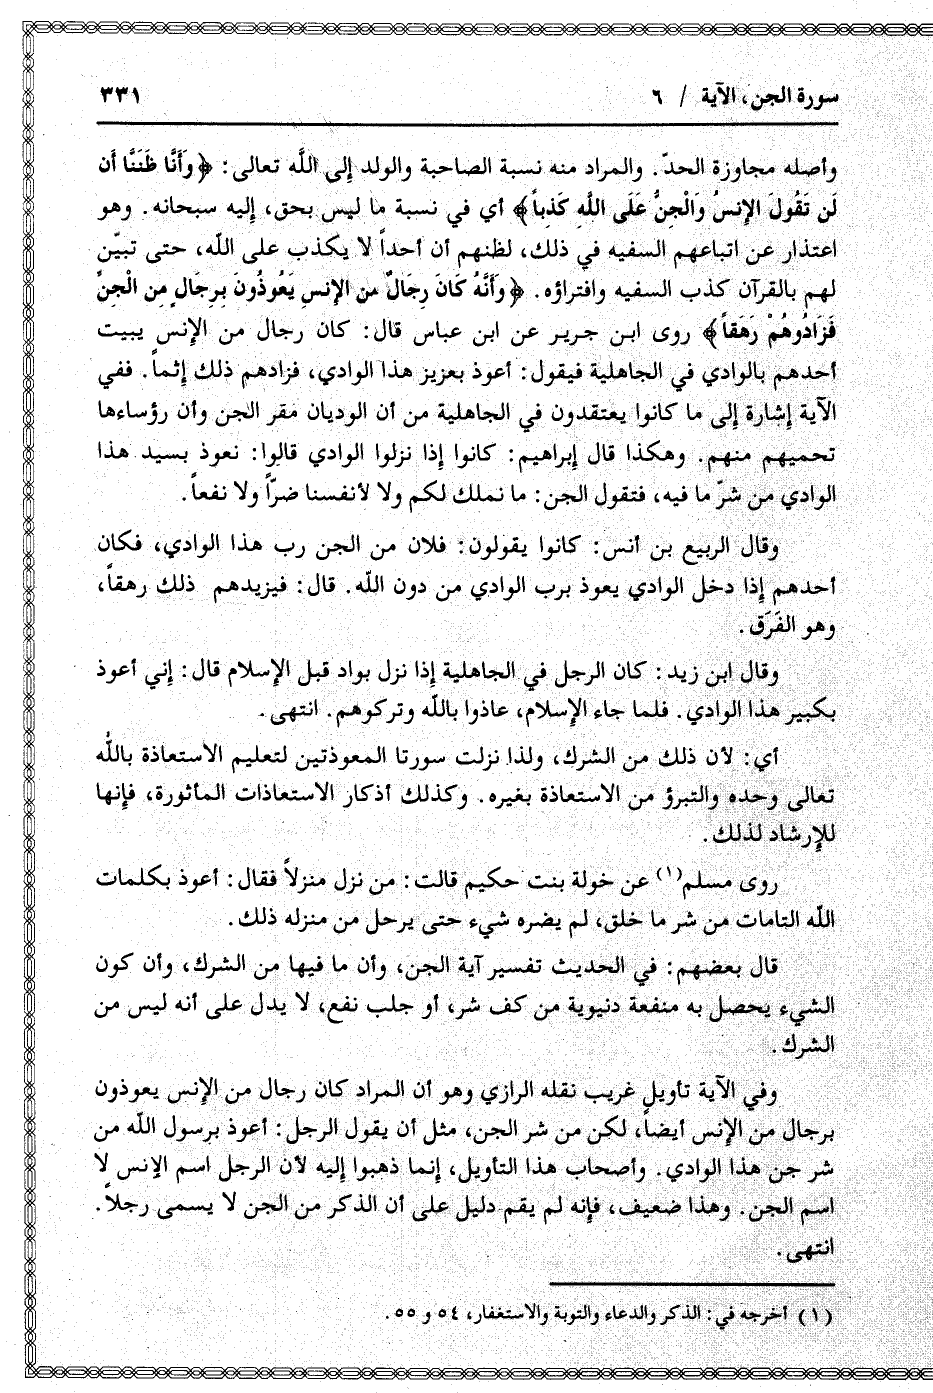 سورة الجن، الآية / ٦ ٣٣١
وأصله مجاوزة الحدّ. والمراد منه نسبة الصاحبة والولد إلى اللَّه تعالى: ﴿وَأَنَّا ظَنَنَّا أَن
لَن تَقُولَ الإِنسُ وَالْجِنُّ عَلَى اللَّهِ كَذِباً﴾ أي في نسبة ما ليس بحق، إليه سبحانه. وهو
اعتذار عن اتباعهم السفيه في ذلك، لظنهم أن أحداً لا يكذب على اللّه، حتى تبيّن
لهم بالقرآن كذب السفيه وافتراؤه. ﴿وَأَنَّهُ كَانَ رِجَالٌ مِن الإِنسِ يَعُوذُونَ بِرِجَالٍ مِن الْجِنِّ
فَزَادُوهُمْ رَهَقاً﴾ روى ابن جرير عن ابن عباس قال: كان رجال من الإنس يبيت
أحدهم بالوادي في الجاهلية فيقول: أعوذ بعزيز هذا الوادي، فزادهم ذلك إثماً. ففي
الآية إشارة إلى ما كانوا يعتقدون في الجاهلية من أن الوديان مقر الجن وأن رؤساءها
تحميهم منهم. وهكذا قال إبراهيم: كانوا إذا نزلوا الوادي قالوا: نعوذ بسيد هذا
الوادي من شرّ ما فيه، فتقول الجن: ما نملك لكم ولا لأنفسنا ضرّاً ولا نفعاً.
وقال الربيع بن أنس: كانوا يقولون: فلان من الجن رب هذا الوادي، فكان
أحدهم إذا دخل الوادي يعوذ برب الوادي من دون اللّه. قال: فيزيدهم ذلك رهقاً،
وهو الفَرَق.
وقال ابن زيد: كان الرجل في الجاهلية إذا نزل بواد قبل الإسلام قال: إني أعوذ
بكبير هذا الوادي. فلما جاء الإسلام، عاذوا باللّه وتركوهم. انتهى.
أي: لأن ذلك من الشرك، ولذا نزلت سورتا المعوذتين لتعليم الاستعاذة باللّه
تعالى وحده والتبرؤ من الاستعاذة بغيره. وكذلك أذكار الاستعاذات المأثورة، فإنها
للإرشاد لذلك.
روى مسلم(١) عن خولة بنت حكيم قالت: من نزل منزلاً فقال: أعوذ بكلمات
اللّه التامات من شر ما خلق، لم يضره شيء حتى يرحل من منزله ذلك.
قال بعضهم: في الحديث تفسير آية الجن، وأن ما فيها من الشرك، وأن كون
الشيء يحصل به منفعة دنيوية من كف شر، أو جلب نفع، لا يدل على أنه ليس من
الشرك.
وفي الآية تأويل غريب نقله الرازي وهو أن المراد كان رجال من الإنس يعوذون
برجال من الإنس أيضاً، لكن من شر الجن، مثل أن يقول الرجل: أعوذ برسول اللّه من
شر جن هذا الوادي. وأصحاب هذا التأويل، إنما ذهبوا إليه لأن الرجل اسم الإنس لا
اسم الجن. وهذا ضعيف، فإنه لم يقم دليل على أن الذكر من الجن لا يسمى رجلاً.
انتهى.
(١) أخرجه في: الذكر والدعاء والتوبة والاستغفار، ٥٤ و ٥٥.